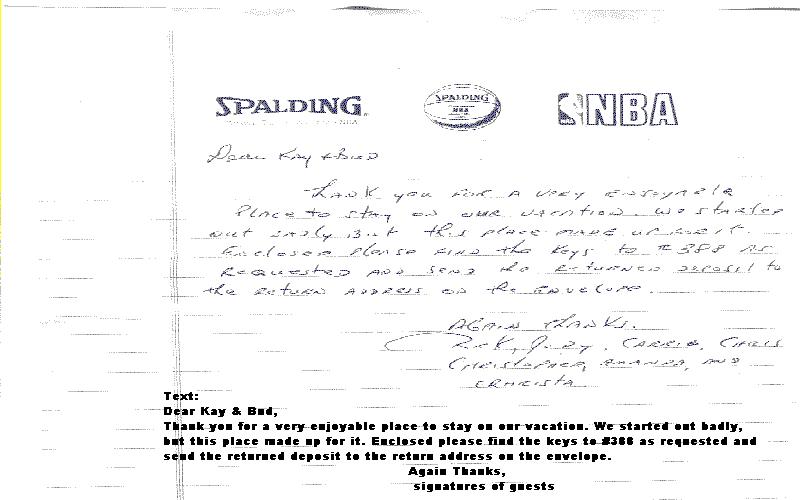 SPALDING SPALDING NBA NBA
Dear Kay & Bud
Thank you for a very enjoyable
place to stay on our vacation. We started
out badly but this place made up for it.
Enclosed please find the keys to #388 as
requested and send the returned deposit to
the return address on the envelope.
Again thanks.
Rick, Judy, Carrie, Chris
Christopher, Amanda, and
Text:
Dear Kay & Bud,
Thank you for a very enjoyable place to stay on our vacation. We started out badly,
but this place made up for it. Enclosed please find the keys to #388 as requested and
send the returned deposit to the return address on the envelope.
Again Thanks,
signatures of guests